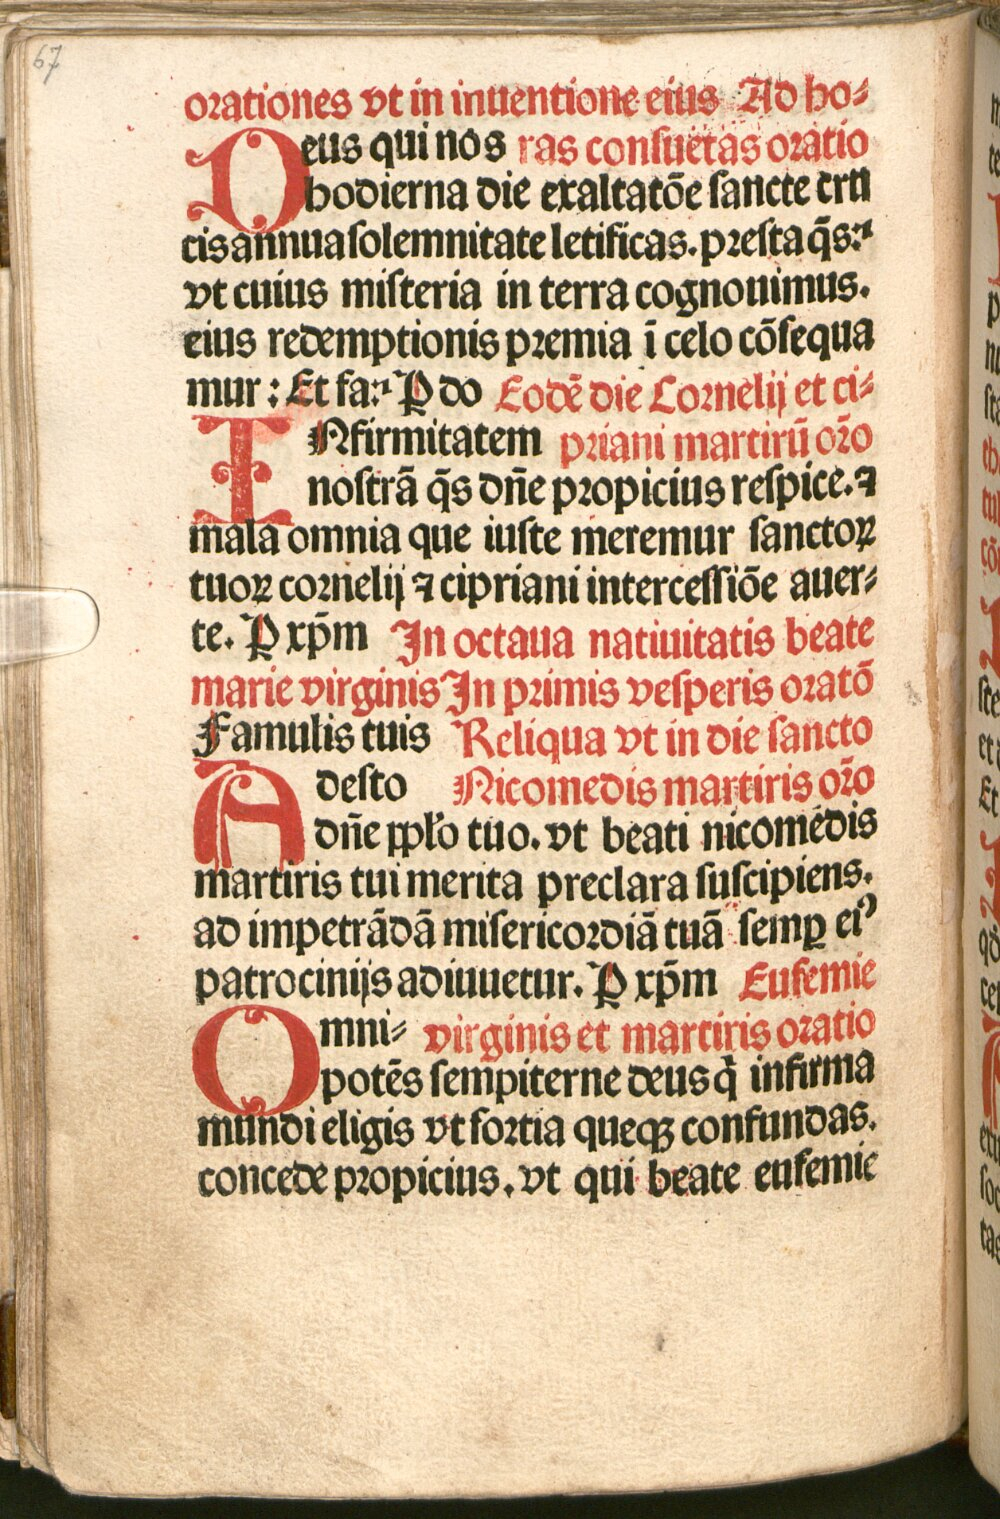 67
orationes vt in inuentione eius Ad ho⸗
Deus qui nos ras consuetas oratio
hodierna die exaltatōe sancte cru
cis annua solemnitate letificas. presta q̄s:ꝛ
vt cuius misteria in terra cognouimus.
eius redemptionis premia ī celo cōsequa
mur : Et fa:ꝛ P do Eodē die Cornelij et ci⸗
INfirmitatem priani martirū orō
nostrā q̄s dn̄e propicius respice. ⁊
mala omnia que iuste meremur sanctoꝝ
tuoꝝ cornelij ⁊ cipriani intercessiōe auer⸗
te. P xp̄m In octaua natiuitatis beate
marie virginis In primis vesperis oratō
Famulis tuis Reliqua vt in die sancto
Adesto Nicomedis martiris orō
dn̄e ppl̄o tuo. vt beati nicomedis
martiris tui merita preclara suscipiens.
ad impetrādā misericordiā tuā semꝑ eiꝰ
patrocinijs adiuuetur. P xp̄m Eufemie
Omni⸗ virginis et martiris oratio
potēs sempiterne deus q̄ infirma
mundi eligis vt fortia queqꝫ confundas.
concede propicius. vt qui beate eufemie